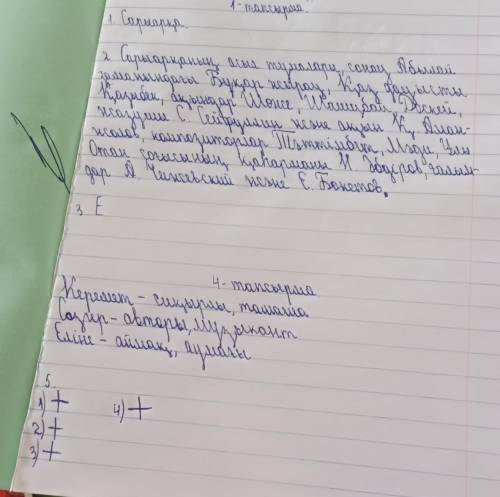 1-тапсырма.
1. Сарыарқа.
2. Сарыарқаның аса тұлғалары, сонау Абылай
заманындағы Бұқар жырау, Қаз дауысты
Қазыбек, ақындар Шөже, Шашубай, Доскей,
жазушы С. Сейфуллин және ақын Қ. Аман-
жолов, композиторлар Тәттімбет, Мәди, Ұлы
Отан соғысының қаһарманы Н. Әбдіров, ғалым-
дар А Чижевский және Е. Бөкетов.
3. Е
4-тапсырма
Керемет - сиқырлы, тамаша
Сазгер - авторы, музыкант
Еліне - аймақ, аумағы
5.
1) + 4) +
2) +
3) +